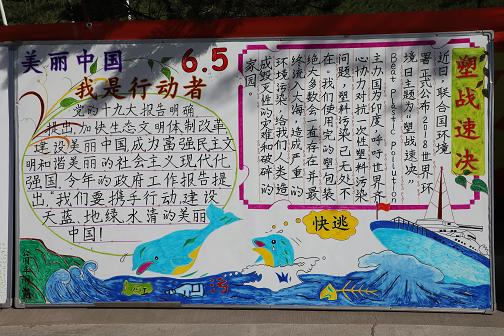 美丽中国
6.5
我是行动者
党的十九大报告明确
提出,加快生态文明体制改革,
建设美丽中国,成为富强民主文
明和谐美丽的社会主义现代化
强国,今年的政府工作报告提
出,"我们要携手行动,建设
天蓝、地绿、水清的美丽
中国!
塑战速决
近日,联合国环境
署正式公布2018世界环
境日主题为"塑战速决"
(Beat Plastic Pollution)
主办国为印度,呼吁世界齐
心协力对抗一次性塑料污染
问题。塑料污染已无处不
在。我们所用完的塑包装
绝大多数会一直存在并最
终流入大海,造成严重的
环境污染,给我们人类造
成毁灭性的灾难和破碎的
家园。
快逃
污